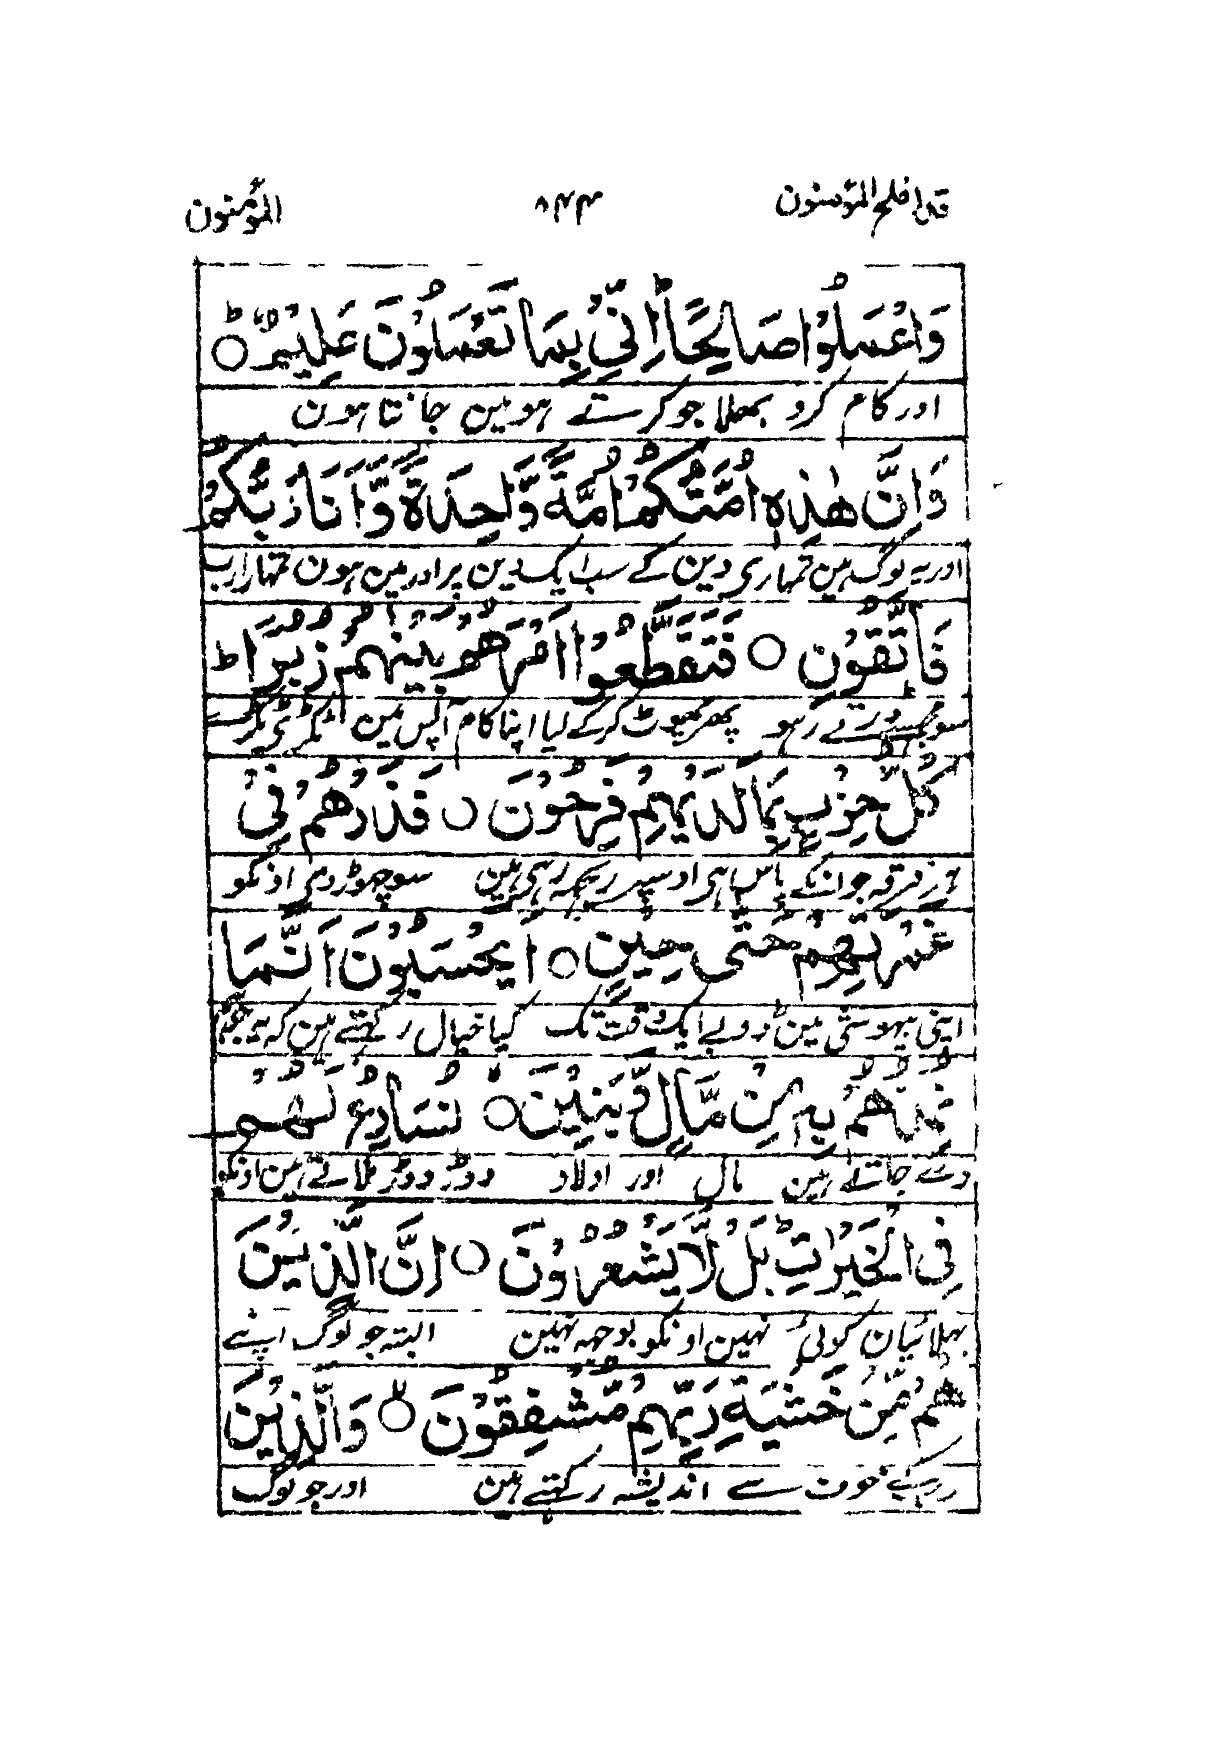 قد افلح المؤمنون ۸۴۴ المؤمنون
وَاعْمَلُوْا صَالِحًا ؕ اِنِّیْ بِمَا تَعْمَلُوْنَ عَلِیْمٌ ؕ○
اور کام کرو بھلا جو کرتے ہو مین جانتا ہون
وَاِنَّ هٰذِهٖۤ اُمَّتُكُمْ اُمَّةً وَّاحِدَةً وَّاَنَا رَبُّكُمْ
اور یہ لوگ ہین تمہاری دین کے سب ایک دین پر اور مین ہون تمہارا رب
فَاتَّقُوْنِ ○ فَتَقَطَّعُوْۤا اَمْرَهُمْ بَیْنَهُمْ زُبُرًا ؕ
سو مجھسے ڈرتے رہو پھر پھوٹ کر کے لیا اپنا کام آپس مین ٹکڑی ٹکڑے
كُلُّ حِزْبٍۭ بِمَا لَدَیْهِمْ فَرِحُوْنَ ○ فَذَرْهُمْ فِیْ
ہر فرقہ جو انکے پاس ہی اوسپر ریجھ رہی ہین سو چھوڑ دی اونکو
غَمْرَتِهِمْ حَتّٰی حِیْنٍ ○ اَیَحْسَبُوْنَ اَنَّمَا
اپنی بیہوشی مین ڈوبے ایک وقت تک کیا خیال رکھتے ہین کہ یہ جو
نُمِدُّهُمْ بِهٖ مِنْ مَّالٍ وَّبَنِیْنَ ○ نُسَارِعُ لَهُمْ
دئے جاتے ہین مال اور اولاد دوڑ دوڑ ملاتے ہین اونکو
فِی الْخَیْرٰتِ ؕ بَلْ لَّا یَشْعُرُوْنَ ○ اِنَّ الَّذِیْنَ
بہلائیان کوئی نہین اونکو بوجہہ نہین البتہ جو لوگ اپنے
هُمْ مِّنْ خَشْیَةِ رَبِّهِمْ مُّشْفِقُوْنَ ○ۙ وَالَّذِیْنَ
رب کے خوف سے اندیشہ رکھتے ہین اور جو لوگ